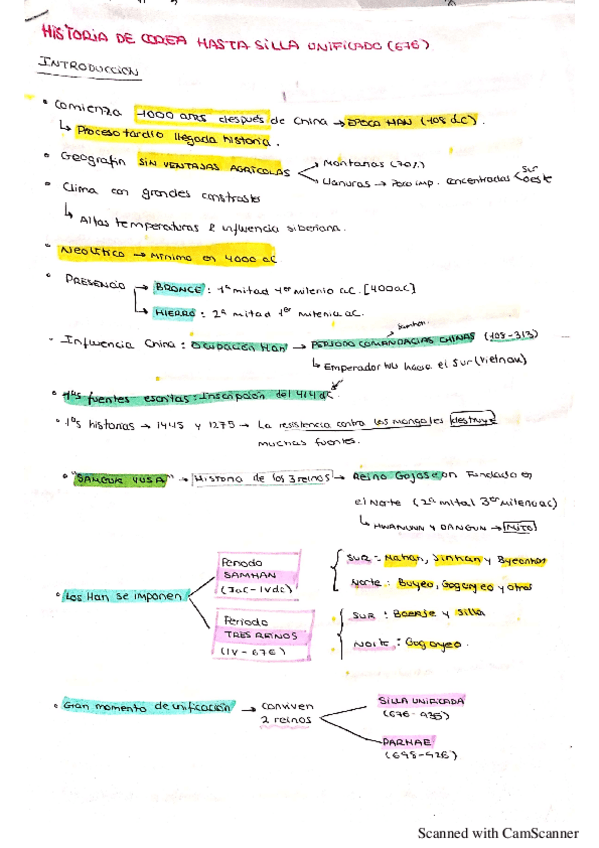 HISTORIA DE COREA HASTA SILLA UNIFICADO (676)
INTRODUCCION
• Comienza 1000 años después de China → EPOCA HAN (-108 d.C).
↳ Proceso tardío llegada historia.
• Geografía SIN VENTAJAS AGRÍCOLAS
→ Montañas (70%)
→ Llanuras → Poco imp. concentradas < sur oeste
• Clima con grandes constrastes
↳ Altas temperaturas e influencia siberiana.
• Neolítico → Mínimo en 4000 aC
• PRESENCIA → BRONCE : 1ª mitad 1er milenio a.C. [400aC]
→ HIERRO : 2ª mitad 1er milenio a.C.
- Influencia China : Ocupación Han → PERIODO COMANDANCIAS CHINAS (108-313)
Samhan
↳ Emperador Wu hacia el Sur (Vietnam)
• 1as fuentes escritas : Inscripción del 414 d.C
• 1as historias → 1145 y 1275 → La resistencia contra los mongoles destruye
muchas fuentes.
• "SAMGUK YUSA" → Historia de los 3 reinos → Reino Gojoseon Fundado en
el Norte (2ª mitad 3er milenio aC)
↳ HWANUNN Y DANGUN → MITO
• Los Han se imponen
Periodo
SAMHAN
(3aC - IVdC)
SUR : Mahan, Jinhan y Byeonhan
Norte : Buyeo, Goguryeo y otros
Periodo
TRES REINOS
(IV - 676)
SUR : Baekje y Silla
NORTE : Goguryeo.
• Gran momento de unificación → conviven
2 reinos
SILLA UNIFICADA
(676 - 935)
PARHAE
(698 - 926)
Scanned with CamScanner